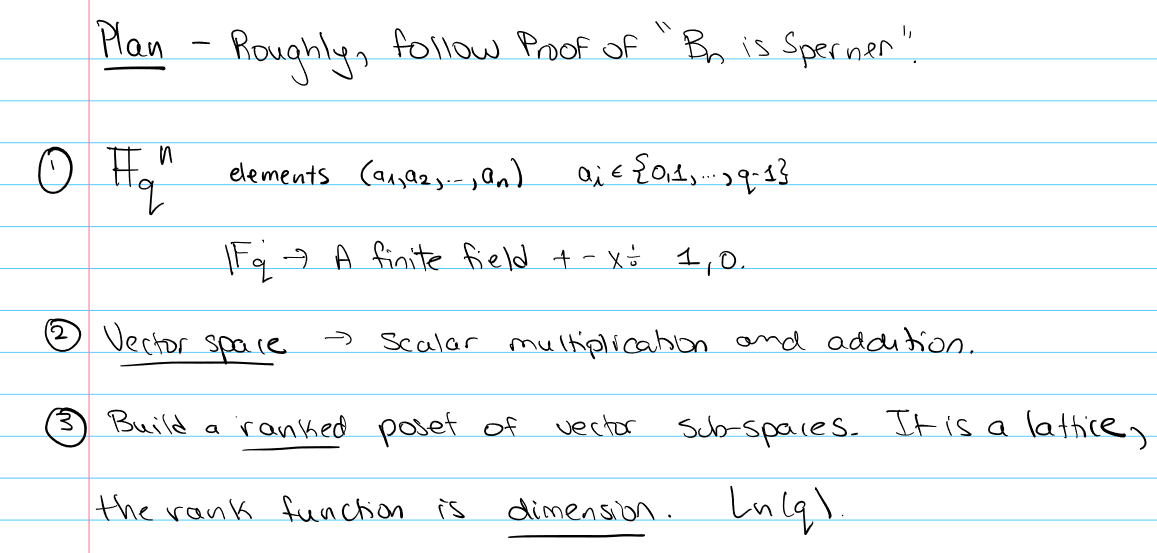 Plan - Roughly, follow Proof of "Bn is Sperner".
① 𝔽q^n elements (a1,a2,...,an) ai ∈ {0,1,...,q-1}
𝔽q → A finite field + - × ÷ 1,0.
② Vector space → scalar multiplication and addition.
③ Build a ranked poset of vector sub-spaces. It is a lattice,
the rank function is dimension. Ln(q).